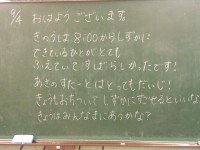 9/4 おはようございます。
きのうは8:00からしずかに
できているひとがとても
ふえていてすばらしかったです!
あさのすたーとはとってもだいじ!
きょうもおちついてしずかにたせるといいな
きょうはみんなまにあうかな?